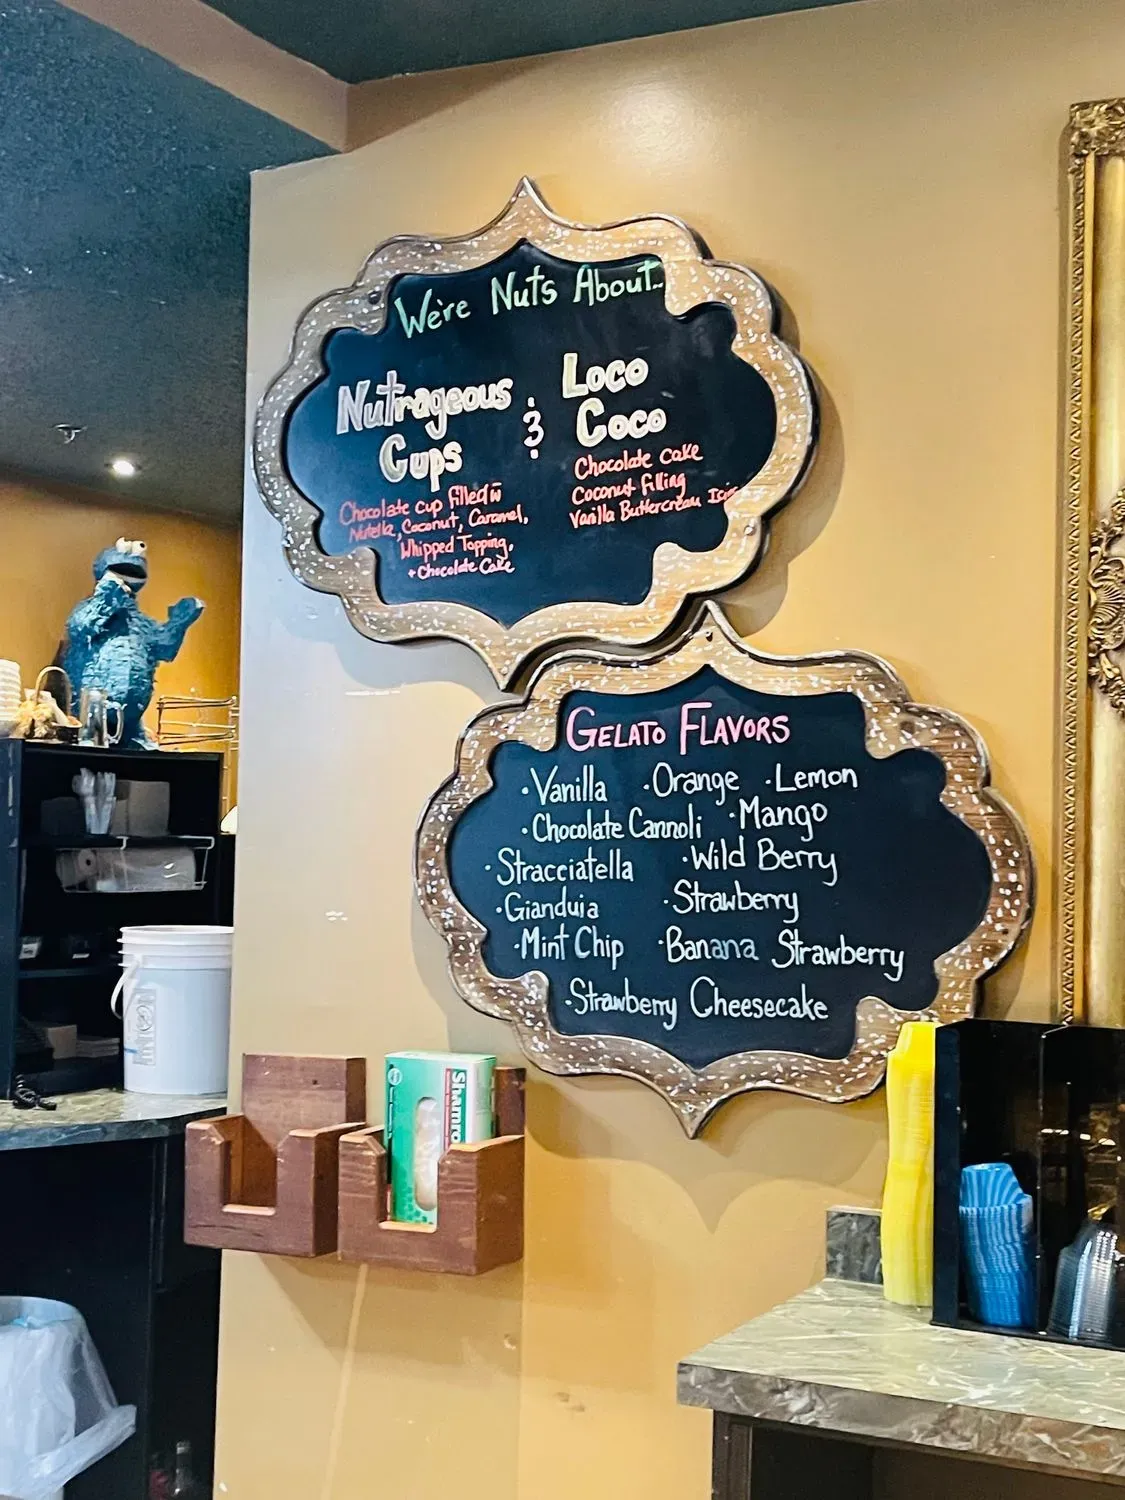 We're Nuts About..
Nutrageous
Cups
&
Loco
Coco
Chocolate cup filled w
Nutella, Coconut, Caramel,
Whipped Topping,
+ Chocolate Cake
Chocolate Cake
Coconut Filling
Vanilla Buttercream Icing
GELATO FLAVORS
·Vanilla ·Orange ·Lemon
·Chocolate Cannoli ·Mango
·Stracciatella ·Wild Berry
·Gianduia ·Strawberry
·Mint Chip ·Banana Strawberry
·Strawberry Cheesecake
Shamro